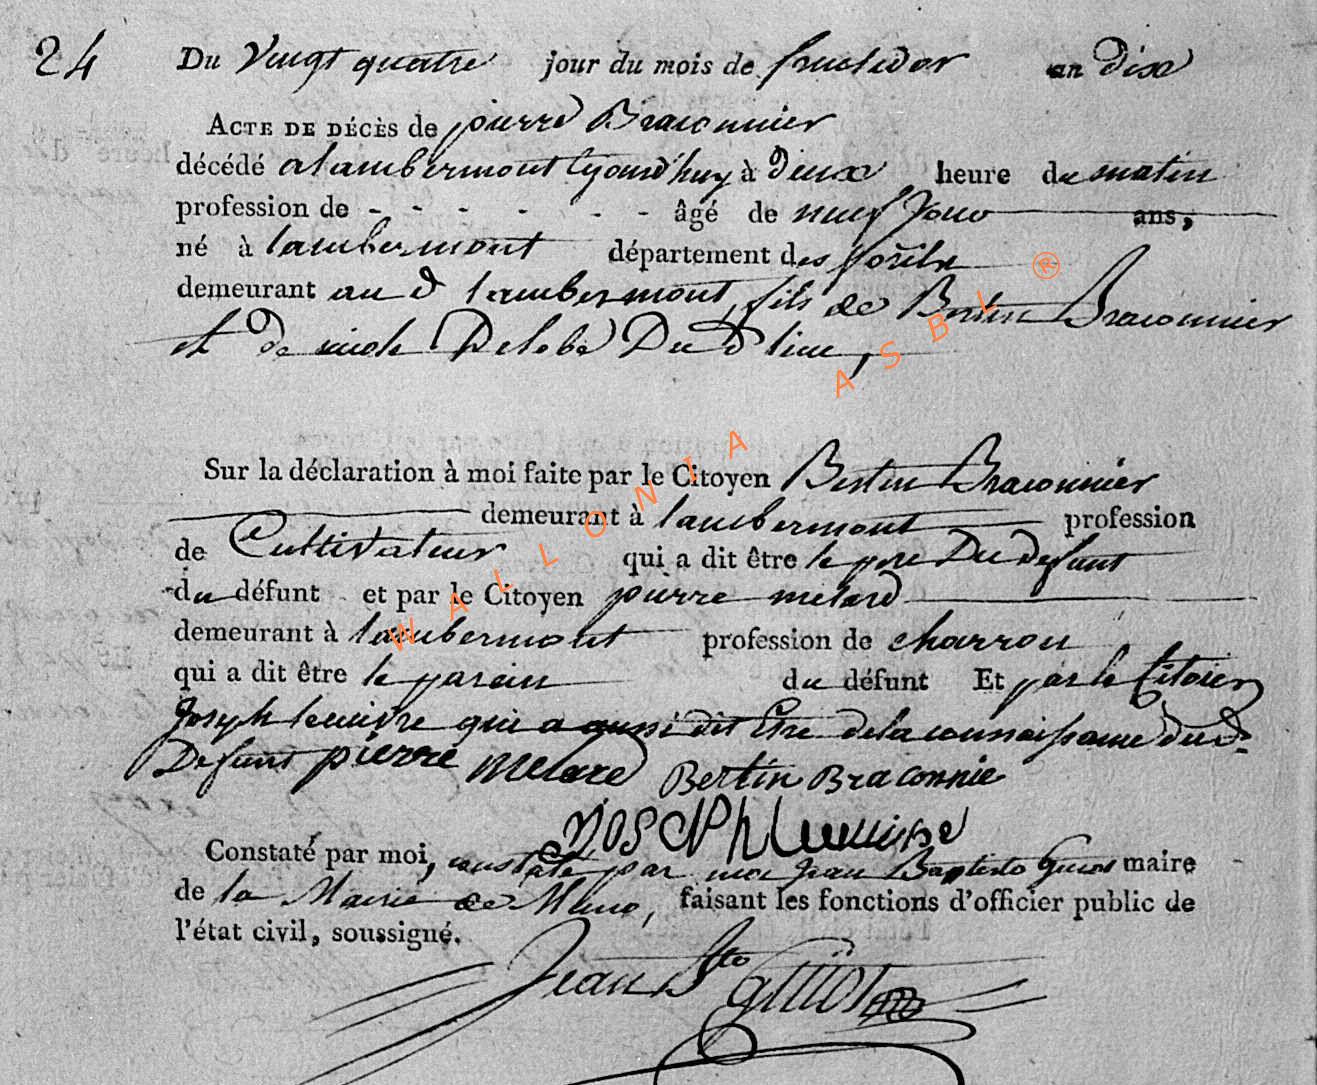 24
Du Vingt quatre jour du mois de fructidor an dix
ACTE DE DÉCÈS de pierre Braconnier
décédé a lambermont à deux heure du matin
profession de - - - - - - - âgé de neuf jour ans,
né à lambermont département des forêts
demeurant au d lambermont, fils de Bertin Braconnier
et de Du d lieu,
Sur la déclaration à moi faite par le Citoyen Bertin Braconnier
demeurant à lambermont profession
de Cultivateur qui a dit être le pere Du defunt
du défunt et par le Citoyen pierre melard
demeurant à lambermont profession de charron
qui a dit être le parain du défunt Et par le Citoien
Joseph qui a aussi dit Etre de la connaissance du d.
Defunt pierre Melard Bertin Braconnie
Joseph
Constaté par moi, constate par moi Jean Baptiste Guiot maire
de la Mairie de Muno, faisant les fonctions d'officier public de
l'état civil, soussigné.
Jean Bte Guiot
WALLONIA ASBL ®